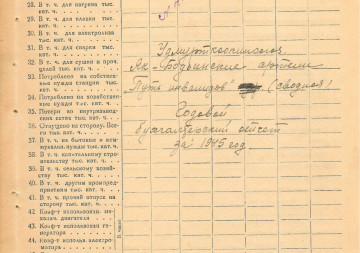 28. В т. ч. для нагрева тыс. квт. ч.
29. В т. ч. для плавки тыс. квт. ч.
30. В т. ч. для электролиза тыс. квт. ч.
31. В т. ч. для сварки тыс. квт. ч.
32. В т. ч. для сушки и прочих целей тыс. квт. ч.
33. Потреблено на собственные нужды станции тыс. квт. ч.
34. Потреблено на хозяйственные нужды тыс. квт. ч.
35. Потери во внутризаводских сетях тыс. квт. ч.
36. Отпущено на сторону. Всего тыс. квт. ч.
37. В т. ч. на бытовые и коммунальн. нужды тыс. квт. ч.
38. В т. ч. капитальному строительству тыс. квт. ч.
39. В т. ч. сельскому хозяйству тыс. квт. ч.
40. В т. ч. другим промпредприятиям тыс. квт. ч.
41. В т. ч. прочий отпуск на сторону тыс. квт. ч.
42. Коэф-т использован. механ. двигателя
43. Коэф-т использован. генератора
44. Коэф-т использ. электромотора
В числе
Удмурткоопинсоюз
Як-Бодьинская артель
"Путь инвалидов" (сводная)
Годовой
бухгалтерский отчет
за 1945 год